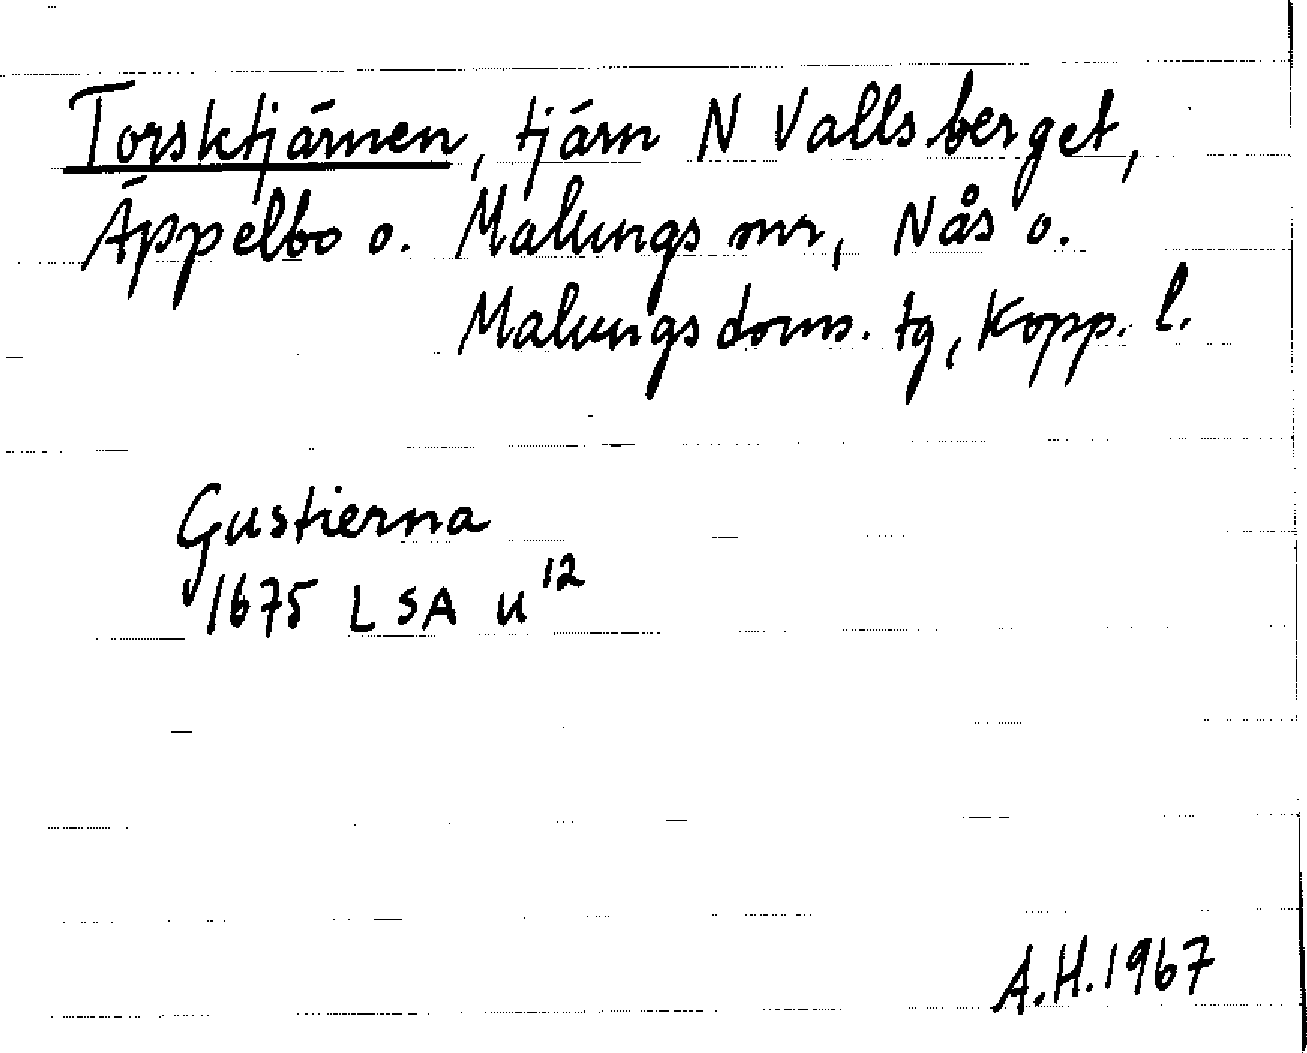 Torsktjärnen, tjärn N Vallsberget,
Äppelbo o. Malungs snr, Nås o.
Malungs doms. tg, Kopp. l.
Gustierna
1675 LSA U¹²
A.H. 1967